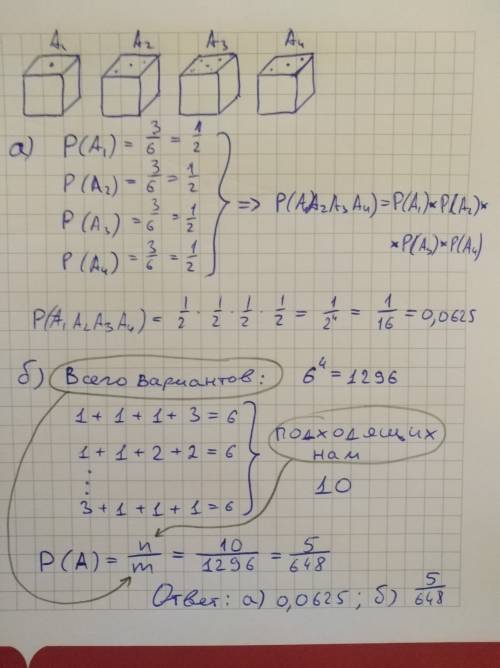 A₁ A₂ A₃ A₄
а) P(A₁) = 3/6 = 1/2
P(A₂) = 3/6 = 1/2
P(A₃) = 3/6 = 1/2
P(A₄) = 3/6 = 1/2
=> P(A₁A₂A₃A₄) = P(A₁)×P(A₂)×
×P(A₃)×P(A₄)
P(A₁A₂A₃A₄) = 1/2 · 1/2 · 1/2 · 1/2 = 1/2⁴ = 1/16 = 0,0625
б) Всего вариантов: 6⁴ = 1296
1 + 1 + 1 + 3 = 6
1 + 1 + 2 + 2 = 6
⋮
3 + 1 + 1 + 1 = 6
подходящих
нам
10
P(A) = n/m = 10/1296 = 5/648
Ответ: а) 0,0625; б) 5/648